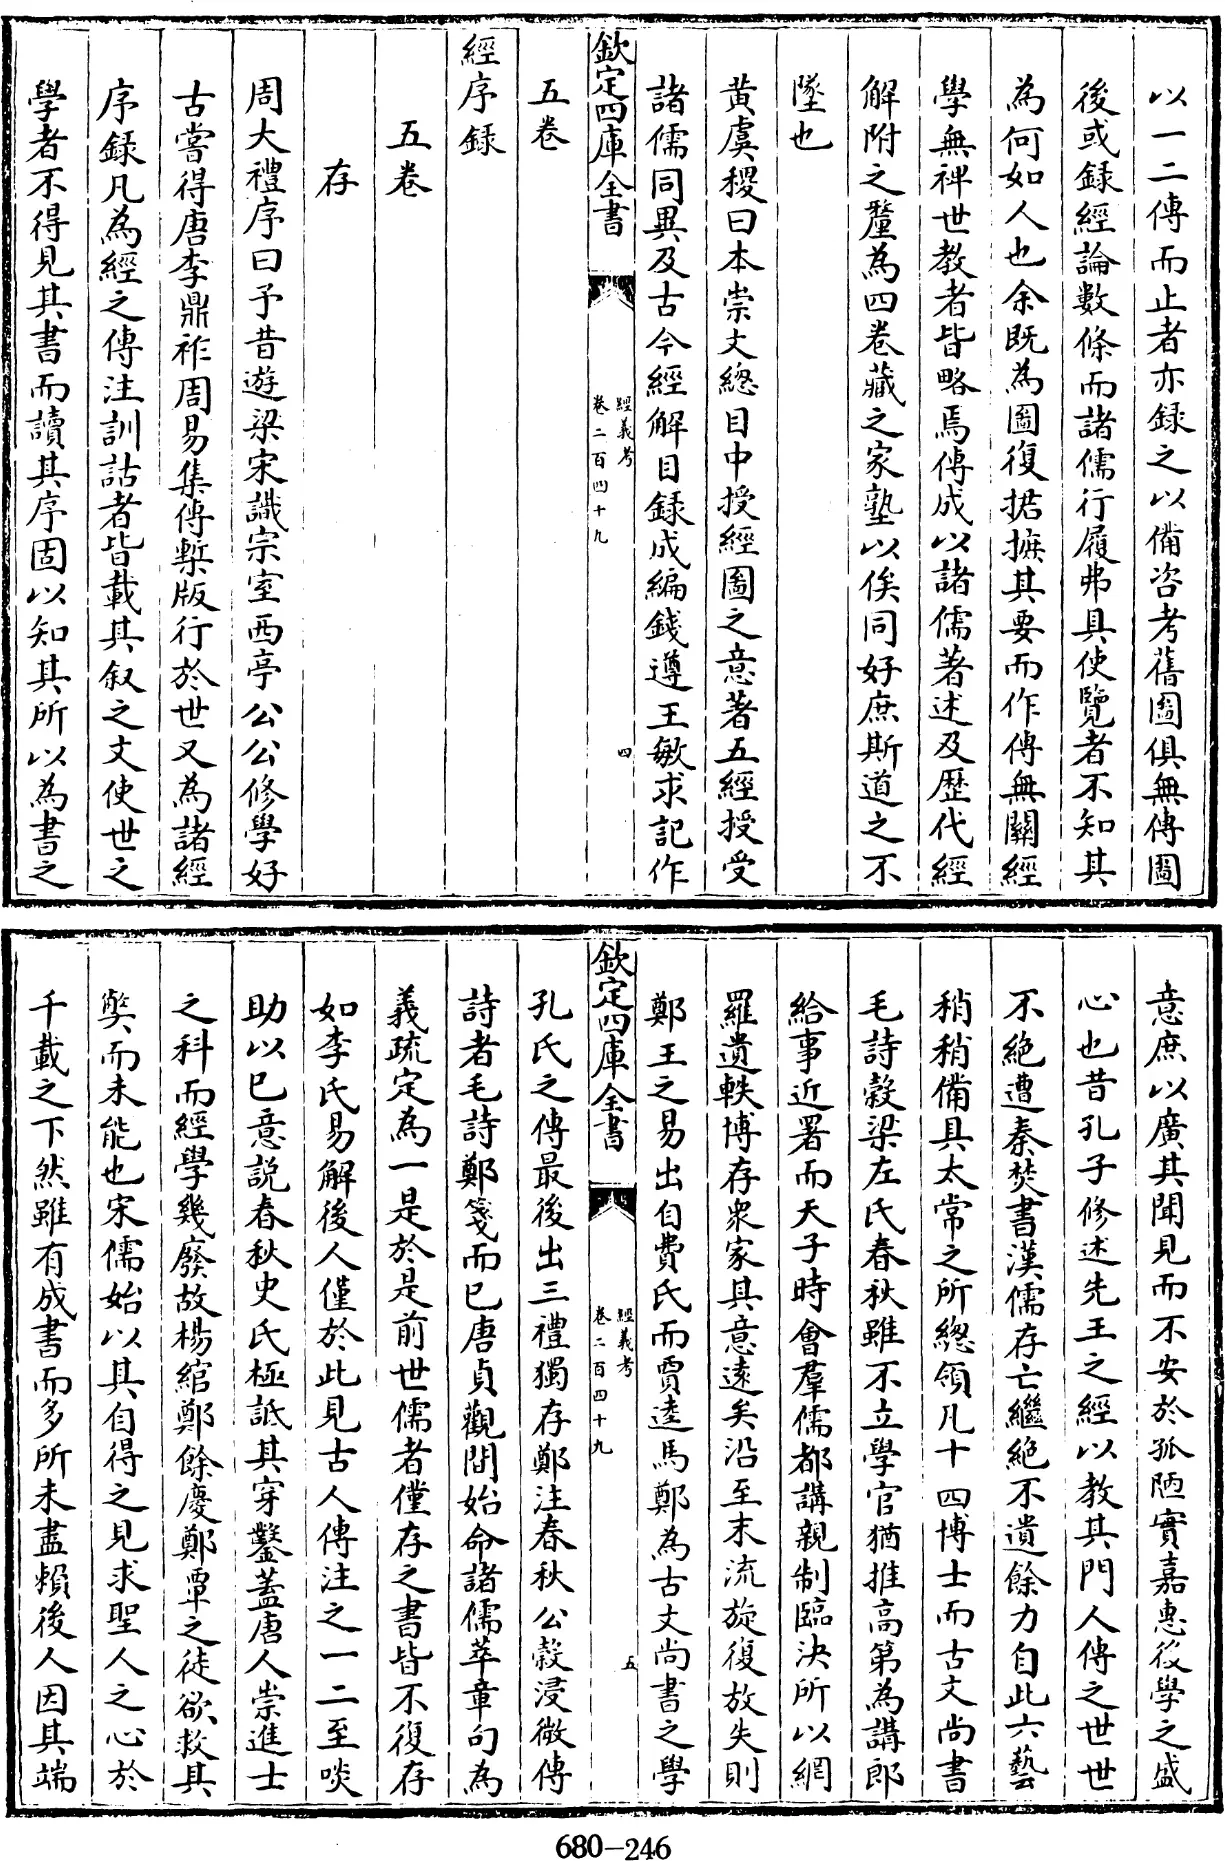 以一二傳而止者亦録之以備咨考舊圖俱無傳圖
後或録經論數條而諸儒行履弗具使覽者不知其
為何如人也余既為圖復掂摭其要而作傳無關經
學無裨世教者皆略焉傳成以諸儒著述及歴代經
解附之釐為四卷藏之家塾以俟同好庶斯道之不
墜也
黄虞稷曰本崇文總目中授經圖之意著五經授受
諸儒同異及古今經解目録成編錢遵王敏求記作
欽定四庫全書
經義考
卷二百四十九
四
五卷
經序録
五卷
存
周大禮序曰予昔遊梁宋識宗室西亭公公修學好
古嘗得唐李鼎祚周易集傳槧版行於世又為諸經
序録凡為經之傳注訓詁者皆載其叙之文使世之
學者不得見其書而讀其序固以知其所以為書之
意庶以廣其聞見而不安於孤陋實嘉惠後學之盛
心也昔孔子修述先王之經以教其門人傳之世世
不絶遭秦焚書漢儒存亡繼絶不遺餘力自此六藝
稍稍備具太常之所總領凡十四博士而古文尚書
毛詩穀梁左氏春秋雖不立學官猶推高第為講郎
給事近署而天子時會羣儒都講親制臨決所以網
羅遺軼博存衆家其意逺矣沿至末流旋復放失則
鄭王之易出自費氏而賈逵馬鄭為古文尚書之學
欽定四庫全書
經義考
卷二百四十九
五
孔氏之傳最後出三禮獨存鄭注春秋公穀浸微傳
詩者毛詩鄭箋而已唐貞觀間始命諸儒萃章句為
義疏定為一是於是前世儒者僅存之書皆不復存
如李氏易解後人僅於此見古人傳注之一二至啖
助以已意説春秋史氏極詆其穿鑿蓋唐人崇進士
之科而經學幾廢故楊綰鄭餘慶鄭覃之徒欲救其
獘而未能也宋儒始以其自得之見求聖人之心於
千載之下然雖有成書而多所未盡賴後人因其端
680-246